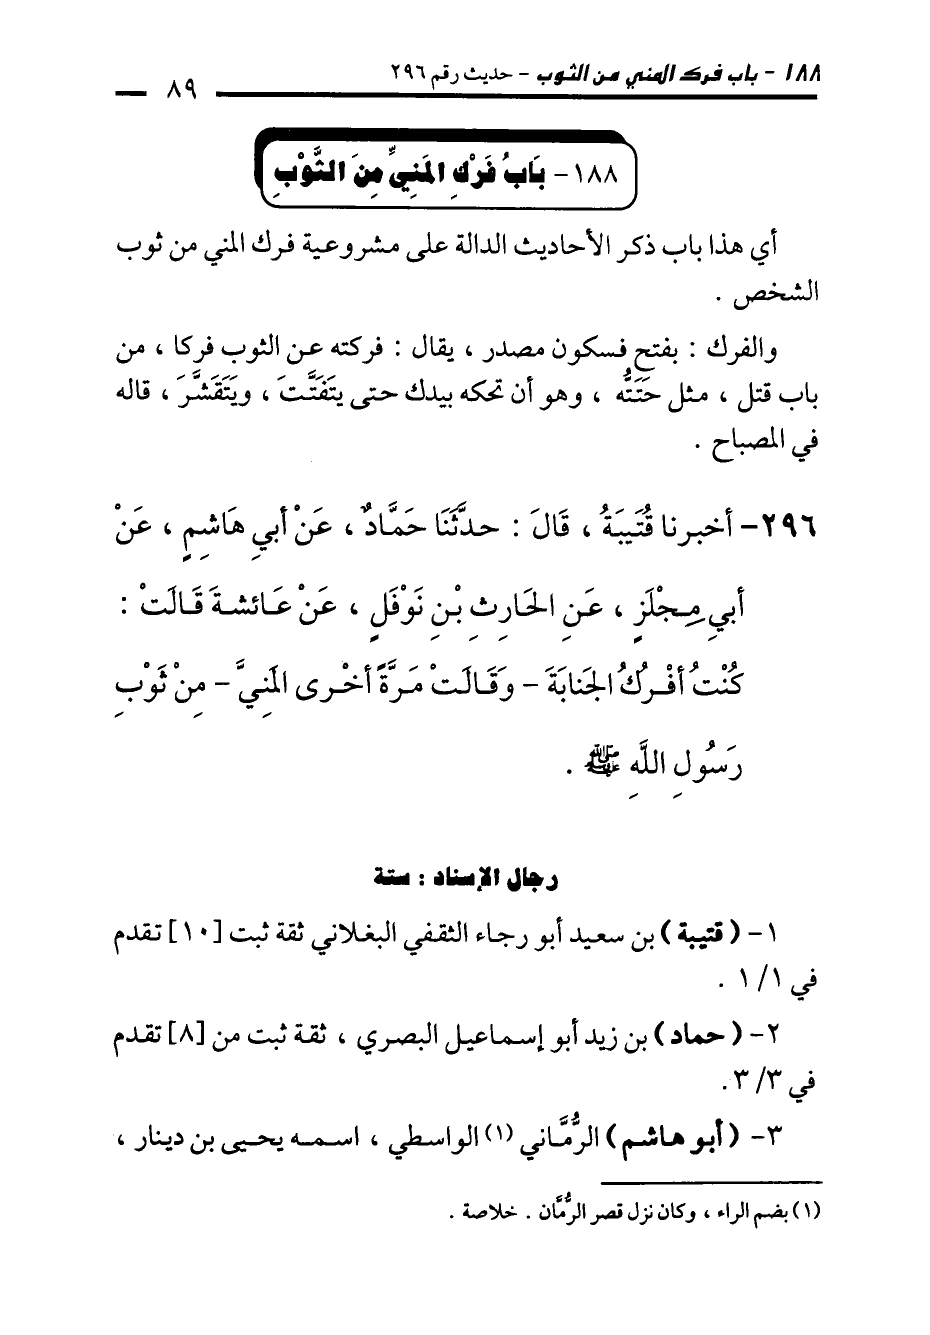 ١٨٨ - باب فرك المني من الثوب - حديث رقم ٢٩٦
٨٩
١٨٨- بَابُ فَرْكِ المَنِيِّ مِنَ الثَّوْبِ
أي هذا باب ذكر الأحاديث الدالة على مشروعية فرك المني من ثوب
الشخص .
والفرك : بفتح فسكون مصدر ، يقال : فركته عن الثوب فركا ، من
باب قتل ، مثل حَتَتُّه ، وهو أن تحكه بيدك حتى يتَفَتَّتَ ، ويَتَقَشَّرَ ، قاله
في المصباح .
٢٩٦- أخبرنا قُتَيبَةُ ، قَالَ : حدثَّنَا حَمَّادٌ ، عَنْ أبي هَاشِمٍ ، عَنْ
أبيِ مِجْلَزٍ ، عَنِ الحَارِثِ بْنِ نَوْفَلٍ ، عَنْ عَائشةَ قَالَتْ :
كُنْتُ أفْرُكُ الجَنابَةَ - وَقَالَتْ مَرَّةً أخْرى المَنِيَّ - مِنْ ثَوْبِ
رَسُولِ اللَّهِ ﷺ .
رجال الإسناد : ستة
١- (قتيبة) بن سعيد أبو رجاء الثقفي البغلاني ثقة ثبت [١٠] تقدم
في ١/١ .
٢- (حماد) بن زيد أبو إسماعيل البصري ، ثقة ثبت من [٨] تقدم
في ٣/٣ .
٣- (أبو هاشم) الرُّمَّاني (١) الواسطي ، اسمه يحيى بن دينار ،
(١) بضم الراء ، وكان نزل قصر الرُّمَّان . خلاصة .